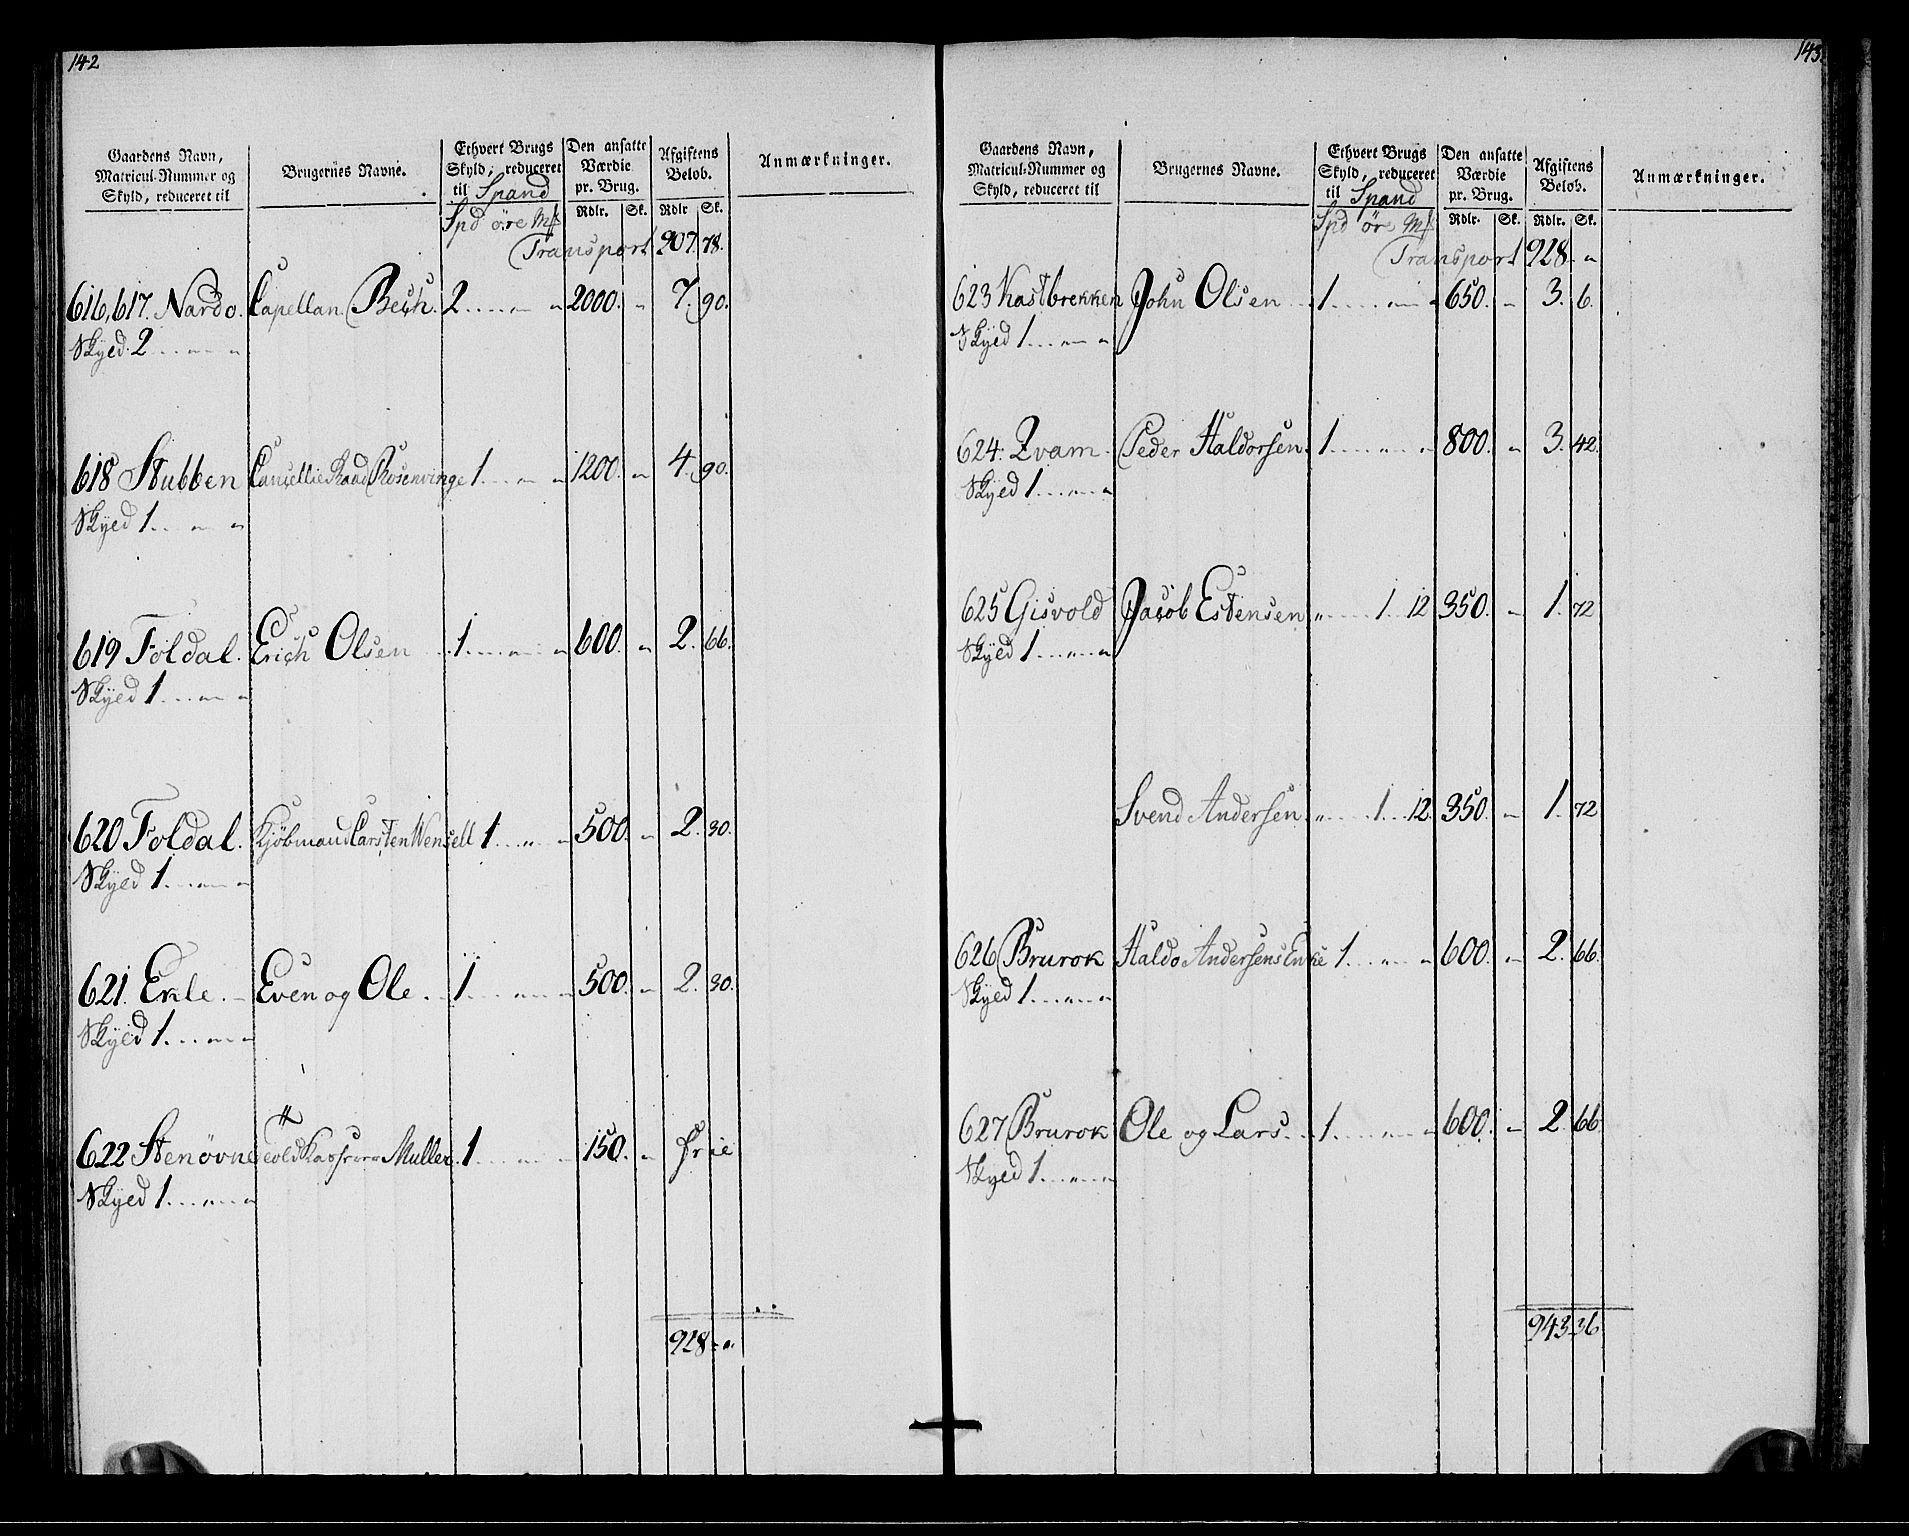 142
Gaardens Navn, Matricul-Nummer og Skyld, reduceret til | Brugernes Navne. | Ethvert Brugs Skyld, reduceret til Spand | Den ansatte Værdie pr. Brug. | Afgiftens Beløb. | Anmærkninger.
Spd øre Mk | Rdlr. | Sk. | Rdlr | Sk.
Transport 907. 78.
616, 617. Nardo. Capellan Bech. 2...."-" 2000. " 7. 90.
Skyed 2..."-" "
618 Stubben Cancellie Raad Rosenvinge 1...."-" 1200. " 4. 90.
Skyed 1..."-" "
619 Foldal. Erich Olsen 1...."-" 600. " 2. 66.
Skyed 1..."-" "
620 Foldal. Kjøbmand Carsten Wensell 1..." " 500. " 2. 30.
Skyed 1..."-" "
621. Ekle. Even og Ole. 1...."-" 500. " 2. 30.
Skyed 1..."-" "
622 Stenøvne Muller. 1...."-" 150. " frie
Skyed 1..."-" "
928 - "
143.
Gaardens Navn, Matricul-Nummer og Skyld, reduceret til | Brugernes Navne. | Ethvert Brugs Skyld, reduceret til Spand | Den ansatte Værdie pr. Brug. | Afgiftens Beløb. | Anmærkninger.
Spd øre Mk | Rdlr. | Sk. | Rdlr. | Sk.
Transport 928 - "
623 Kastbrekken John Olsen 1...."-" 650. " 3. 6.
Skyed 1..."-" "
624. Qvam. Peder Haldorsen. 1...."-" 800. " 3. 42.
Skyed 1..."-" "
625 Gisvold Jacob Estensen "....1. 12 350. " 1. 72
Skyed 1..."-" "
Svend Andersen. "....1.. 12. 350. " 1. 72
626 Brurok Haldo Andersens Enke 1..." " 600. " 2. 66.
Skyed 1..."-" "
627 Brurok Ole og Lars. 1...."-" 600. " 2. 66.
Skyed 1..."-" "
943. 36.